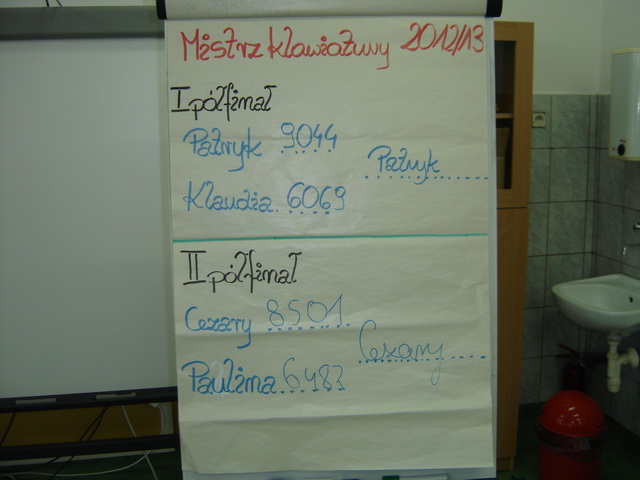 Mistrz klawiatury 2012/13
I półfinał
Patryk 9044
Patryk
Klaudia 6069
II półfinał
Cezary 8501
Cezary
Paulina 6483